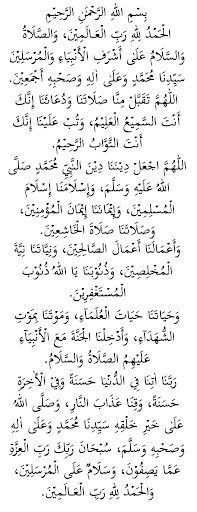 بِسْمِ اللهِ الرَّحْمٰنِ الرَّحِيْمِ
اَلْحَمْدُ لِلّٰهِ رَبِّ الْعَالَمِيْنَ، وَالصَّلَاةُ
وَالسَّلَامُ عَلَى أَشْرَفِ الْأَنْبِيَاءِ وَالْمُرْسَلِيْنَ
سَيِّدِنَا مُحَمَّدٍ وَعَلَى اٰلِهِ وَصَحْبِهِ أَجْمَعِيْنَ.
اَللّٰهُمَّ تَقَبَّلْ مِنَّا صَلَاتَنَا وَدُعَائَنَا إِنَّكَ
أَنْتَ السَّمِيْعُ الْعَلِيْمُ، وَتُبْ عَلَيْنَا إِنَّكَ
أَنْتَ التَّوَّابُ الرَّحِيْمُ.
اَللّٰهُمَّ اجْعَلْ دِيْنَنَا دِيْنَ النَّبِيِّ مُحَمَّدٍ صَلَّى
اللهُ عَلَيْهِ وَسَلَّمَ، وَإِسْلَامَنَا إِسْلَامَ
الْمُسْلِمِيْنَ، وَإِيْمَانَنَا إِيْمَانَ الْمُؤْمِنِيْنَ،
وَصَلَاتَنَا صَلَاةَ الْخَاشِعِيْنَ.
وَأَعْمَالَنَا أَعْمَالَ الصَّالِحِيْنَ، وَنِيَّاتَنَا نِيَّةَ
الْمُخْلِصِيْنَ، وَذُنُوْبَنَا يَا اللهُ ذُنُوْبَ
الْمُسْتَغْفِرِيْنَ.
وَحَيَاتَنَا حَيَاتَ الْعُلَمَآءِ، وَمَوْتَنَا بِمَوْتِ
الشُّهَدَآءِ، وَأَدْخِلْنَا الْجَنَّةَ مَعَ الْأَنْبِيَآءِ
عَلَيْهِمُ الصَّلَاةُ وَالسَّلَامُ.
رَبَّنَا اٰتِنَا فِي الدُّنْيَا حَسَنَةً وَفِي الْاٰخِرَةِ
حَسَنَةً، وَقِنَا عَذَابَ النَّارِ، وَصَلَّى اللهُ
عَلَى خَيْرِ خَلْقِهِ سَيِّدِنَا مُحَمَّدٍ وَعَلَى اٰلِهِ
وَصَحْبِهِ وَسَلَّمَ، سُبْحَانَ رَبِّكَ رَبِّ الْعِزَّةِ
عَمَّا يَصِفُوْنَ، وَسَلَامٌ عَلَى الْمُرْسَلِيْنَ،
وَالْحَمْدُ لِلّٰهِ رَبِّ الْعَالَمِيْنَ.